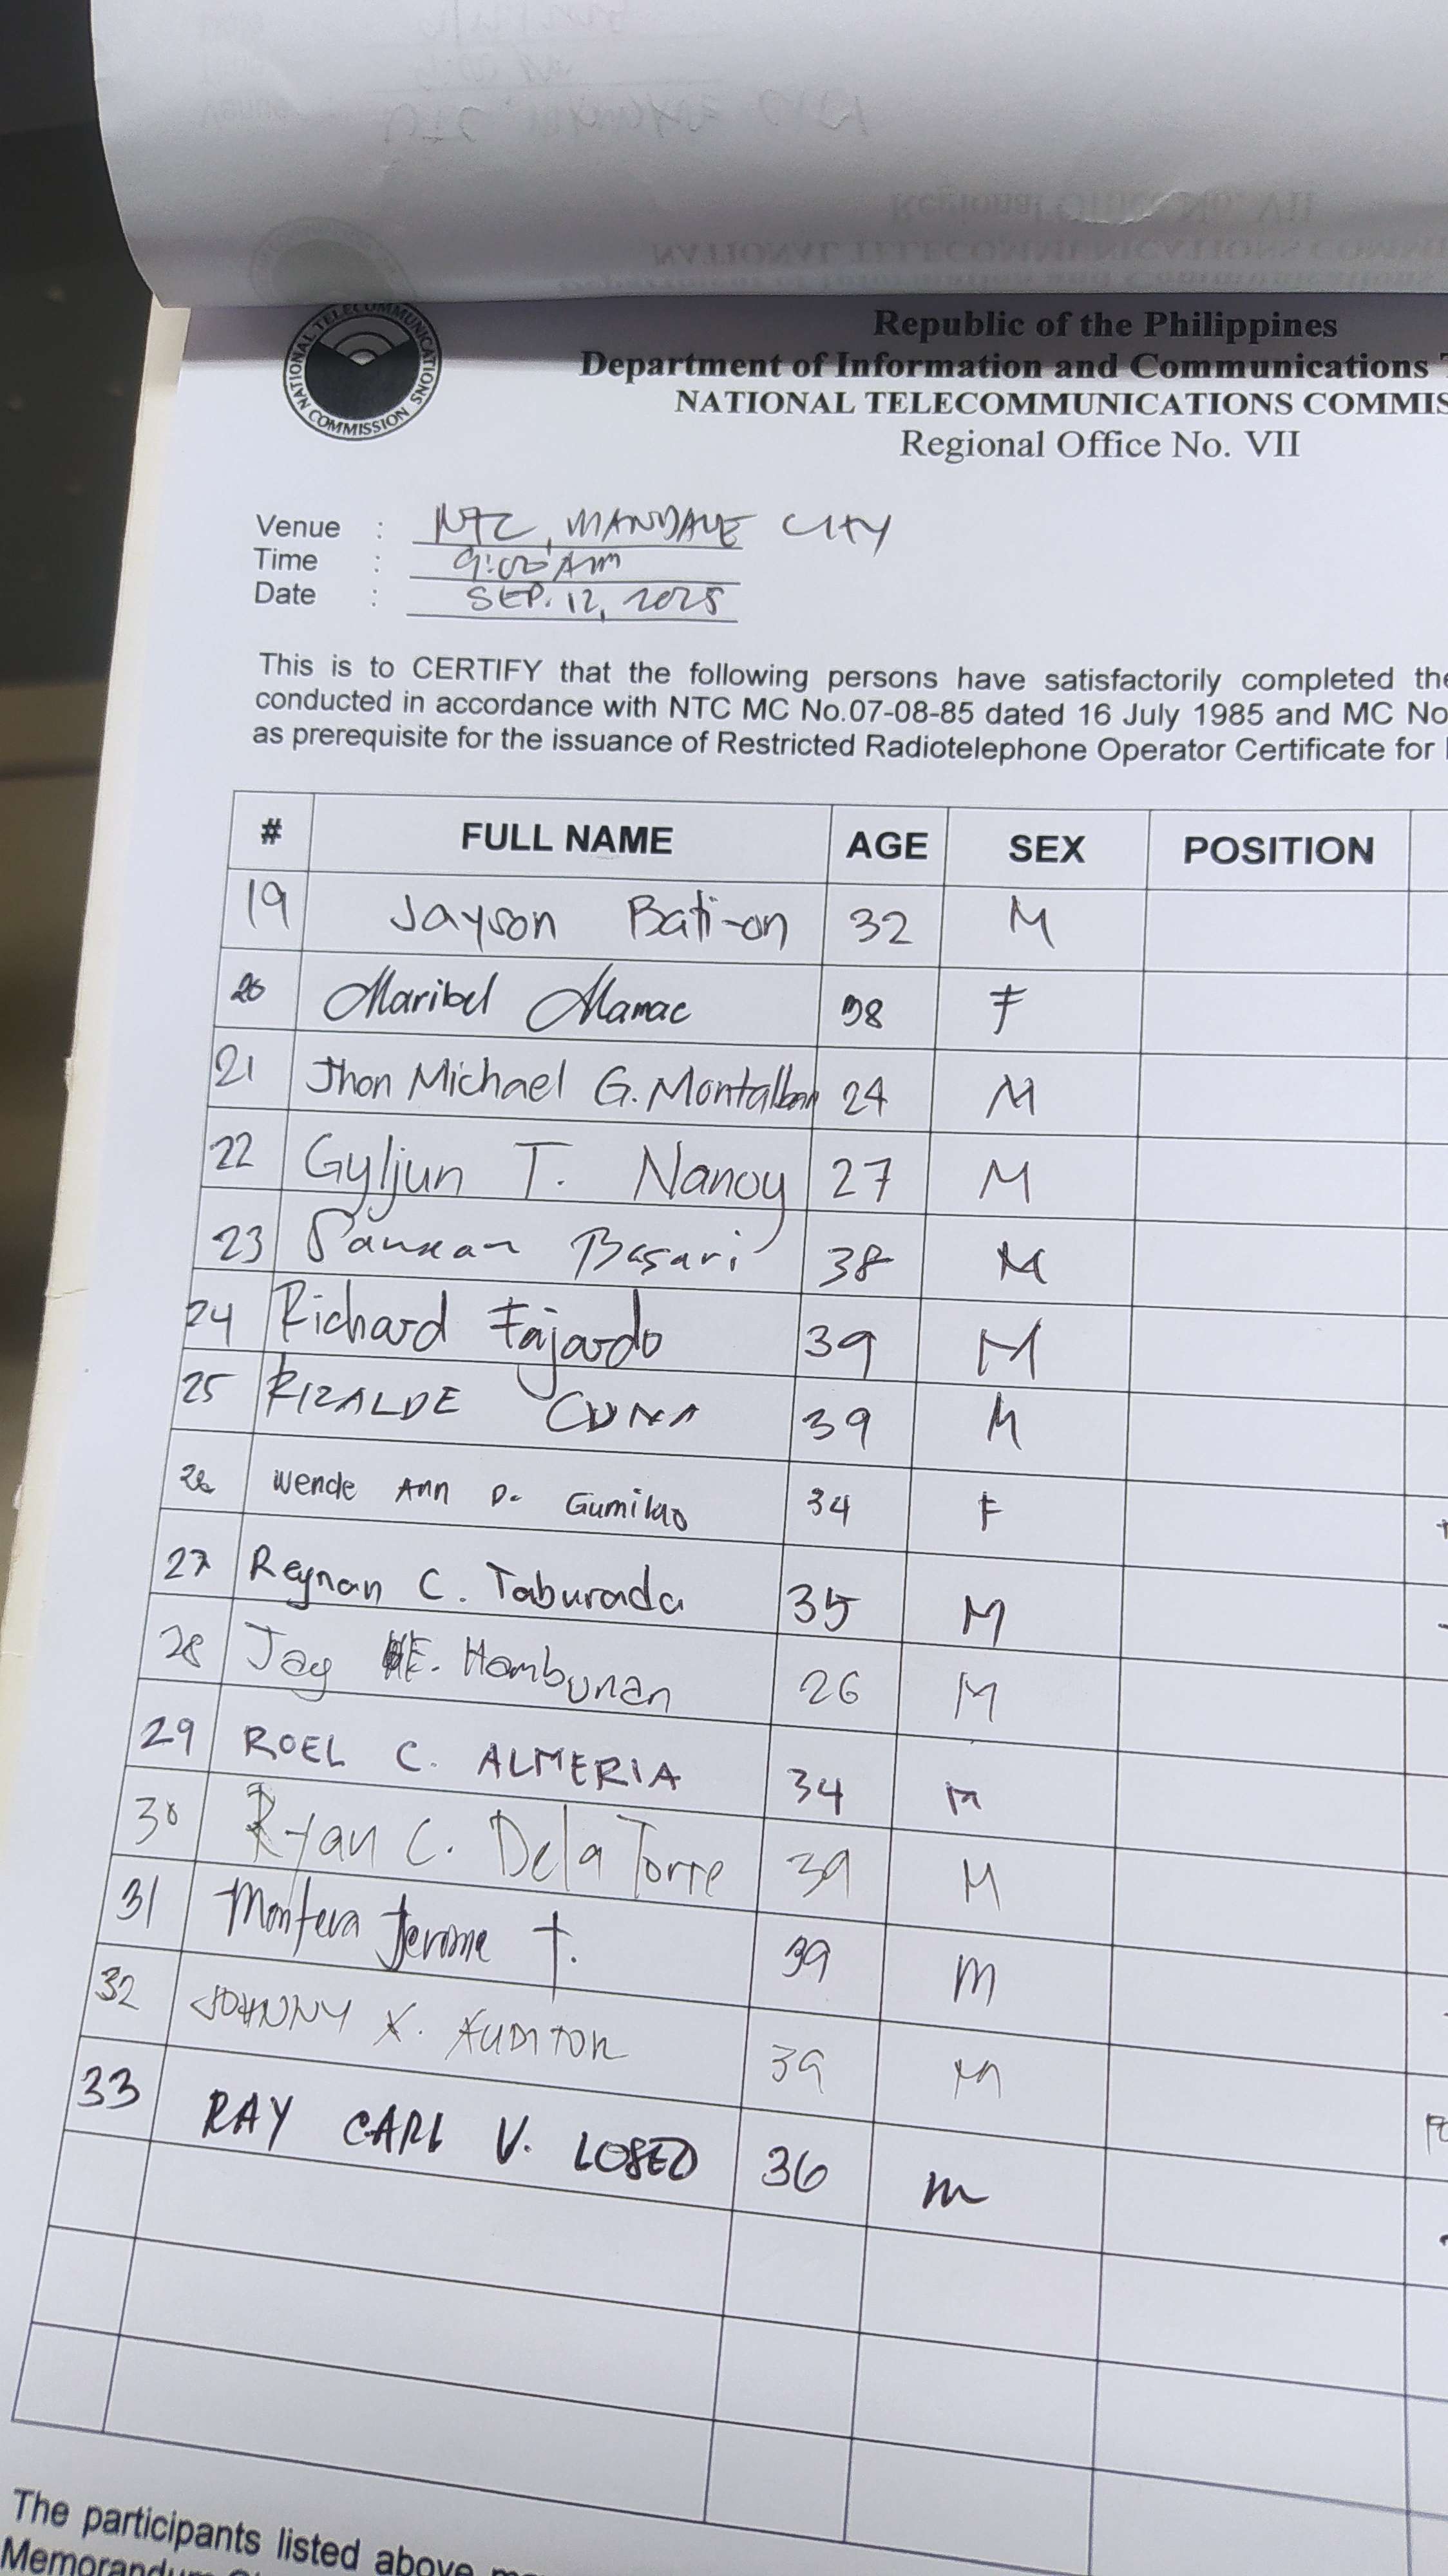 NATIONAL TELECOMMUNICATIONS COMMISSION
Republic of the Philippines
Department of Information and Communications
NATIONAL TELECOMMUNICATIONS COMMIS
Regional Office No. VII
Venue : NTC, MANDAUE CITY
Time : 9:00 AM
Date : SEP. 12, 2025
This is to CERTIFY that the following persons have satisfactorily completed the
conducted in accordance with NTC MC No.07-08-85 dated 16 July 1985 and MC No
as prerequisite for the issuance of Restricted Radiotelephone Operator Certificate for
# FULL NAME AGE SEX POSITION
19 Jayson Bati-on 32 M
20 Maribel F
21 Jhon Michael G. Montalban 24 M
22 Gyljun T. Nanoy 27 M
23 Basari 38 M
24 Richard Fajardo 39 M
25 RIZALDE CUNA 39 M
26 Wende Ann D. Gumilao 34 F
27 Reynan C. Taburada 35 M
28 Jay E. Hambunan 26 M
29 ROEL C. ALMERIA 34 M
30 Ryan C. Dela Torre 39 M
31 Jerome T. 39 M
32 JOHNNY X. AUDITOR 39 M
33 RAY CARL V. LOSED 36 M
The participants listed above